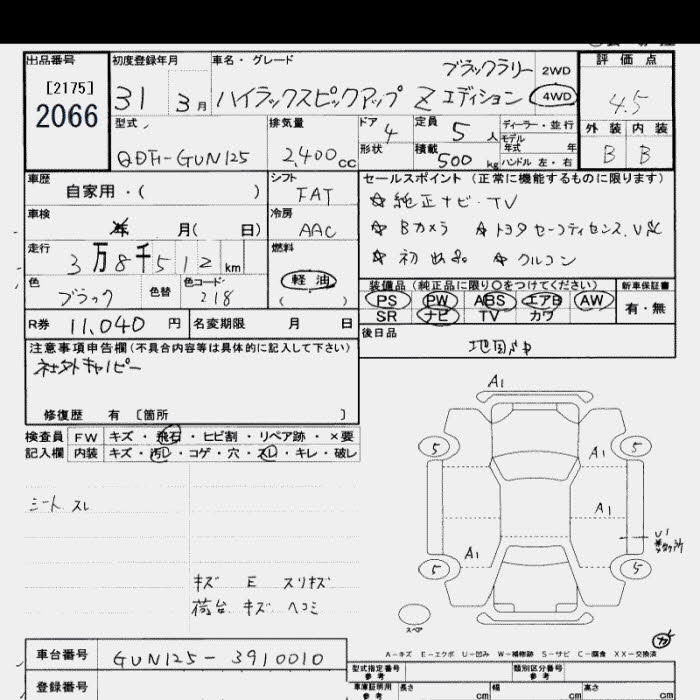 出品番号
[2175]
2066
初度登録年月
31 3月
車名・グレード
ブラックラリー
ハイラックスピックアップ Z エディション
2WD
4WD
評価点
4.5
外装 内装
B B
型式
QDF-GUN125
排気量
2,400cc
ドア
4
形状
定員
5人
積載
500kg
ディーラー・並行
モデル
年式 年
ハンドル 左・右
車歴
自家用・( )
シフト
FAT
車検
年 月( 日)
冷房
AAC
走行
3万8千512km
燃料
軽油
( )
色
ブラック
色替
色コード
218
R券 11,040円
名変期限 月 日
セールスポイント (正常に機能するものに限ります)
☆純正ナビ・TV
☆Bカメラ ☆トヨタセーフティセンス
☆クルコン
装備品 (純正品に限り○をつけてください)
PS PW ABS エアB AW
SR ナビ TV カワ
新車保証書
有・無
後日品
注意事項申告欄(不具合内容等は具体的に記入して下さい)
社外キャノピー
修復歴 有 [箇所 ]
検査員 FW キズ・飛石・ヒビ割・リペア跡・×要
記入欄 内装 キズ・汚レ・コゲ・穴・スレ・キレ・破レ
シート スレ
キズ E スリキズ
荷台 キズ ヘコミ
A1
5 5
A1
A1
U1
A1
5 5
スペア
A-キズ E-エクボ U-凹み W-補修跡 S-サビ C-腐食 XX-交換済
車台番号 GUN125-3910010
登録番号
型式指定番号
参考
類別区分番号
参考
車庫証明用
参考
長さ cm 幅 cm 高さ cm